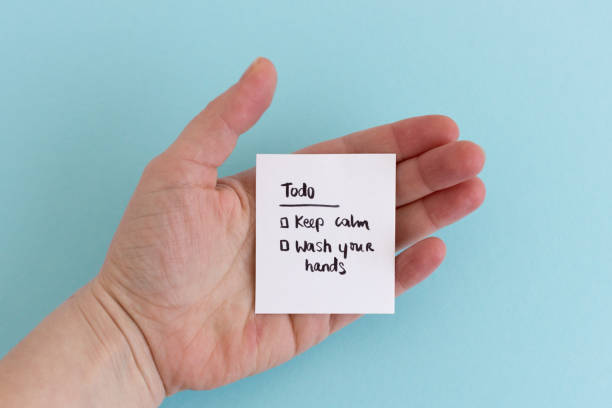 Todo
☐ Keep calm
☐ Wash your
hands